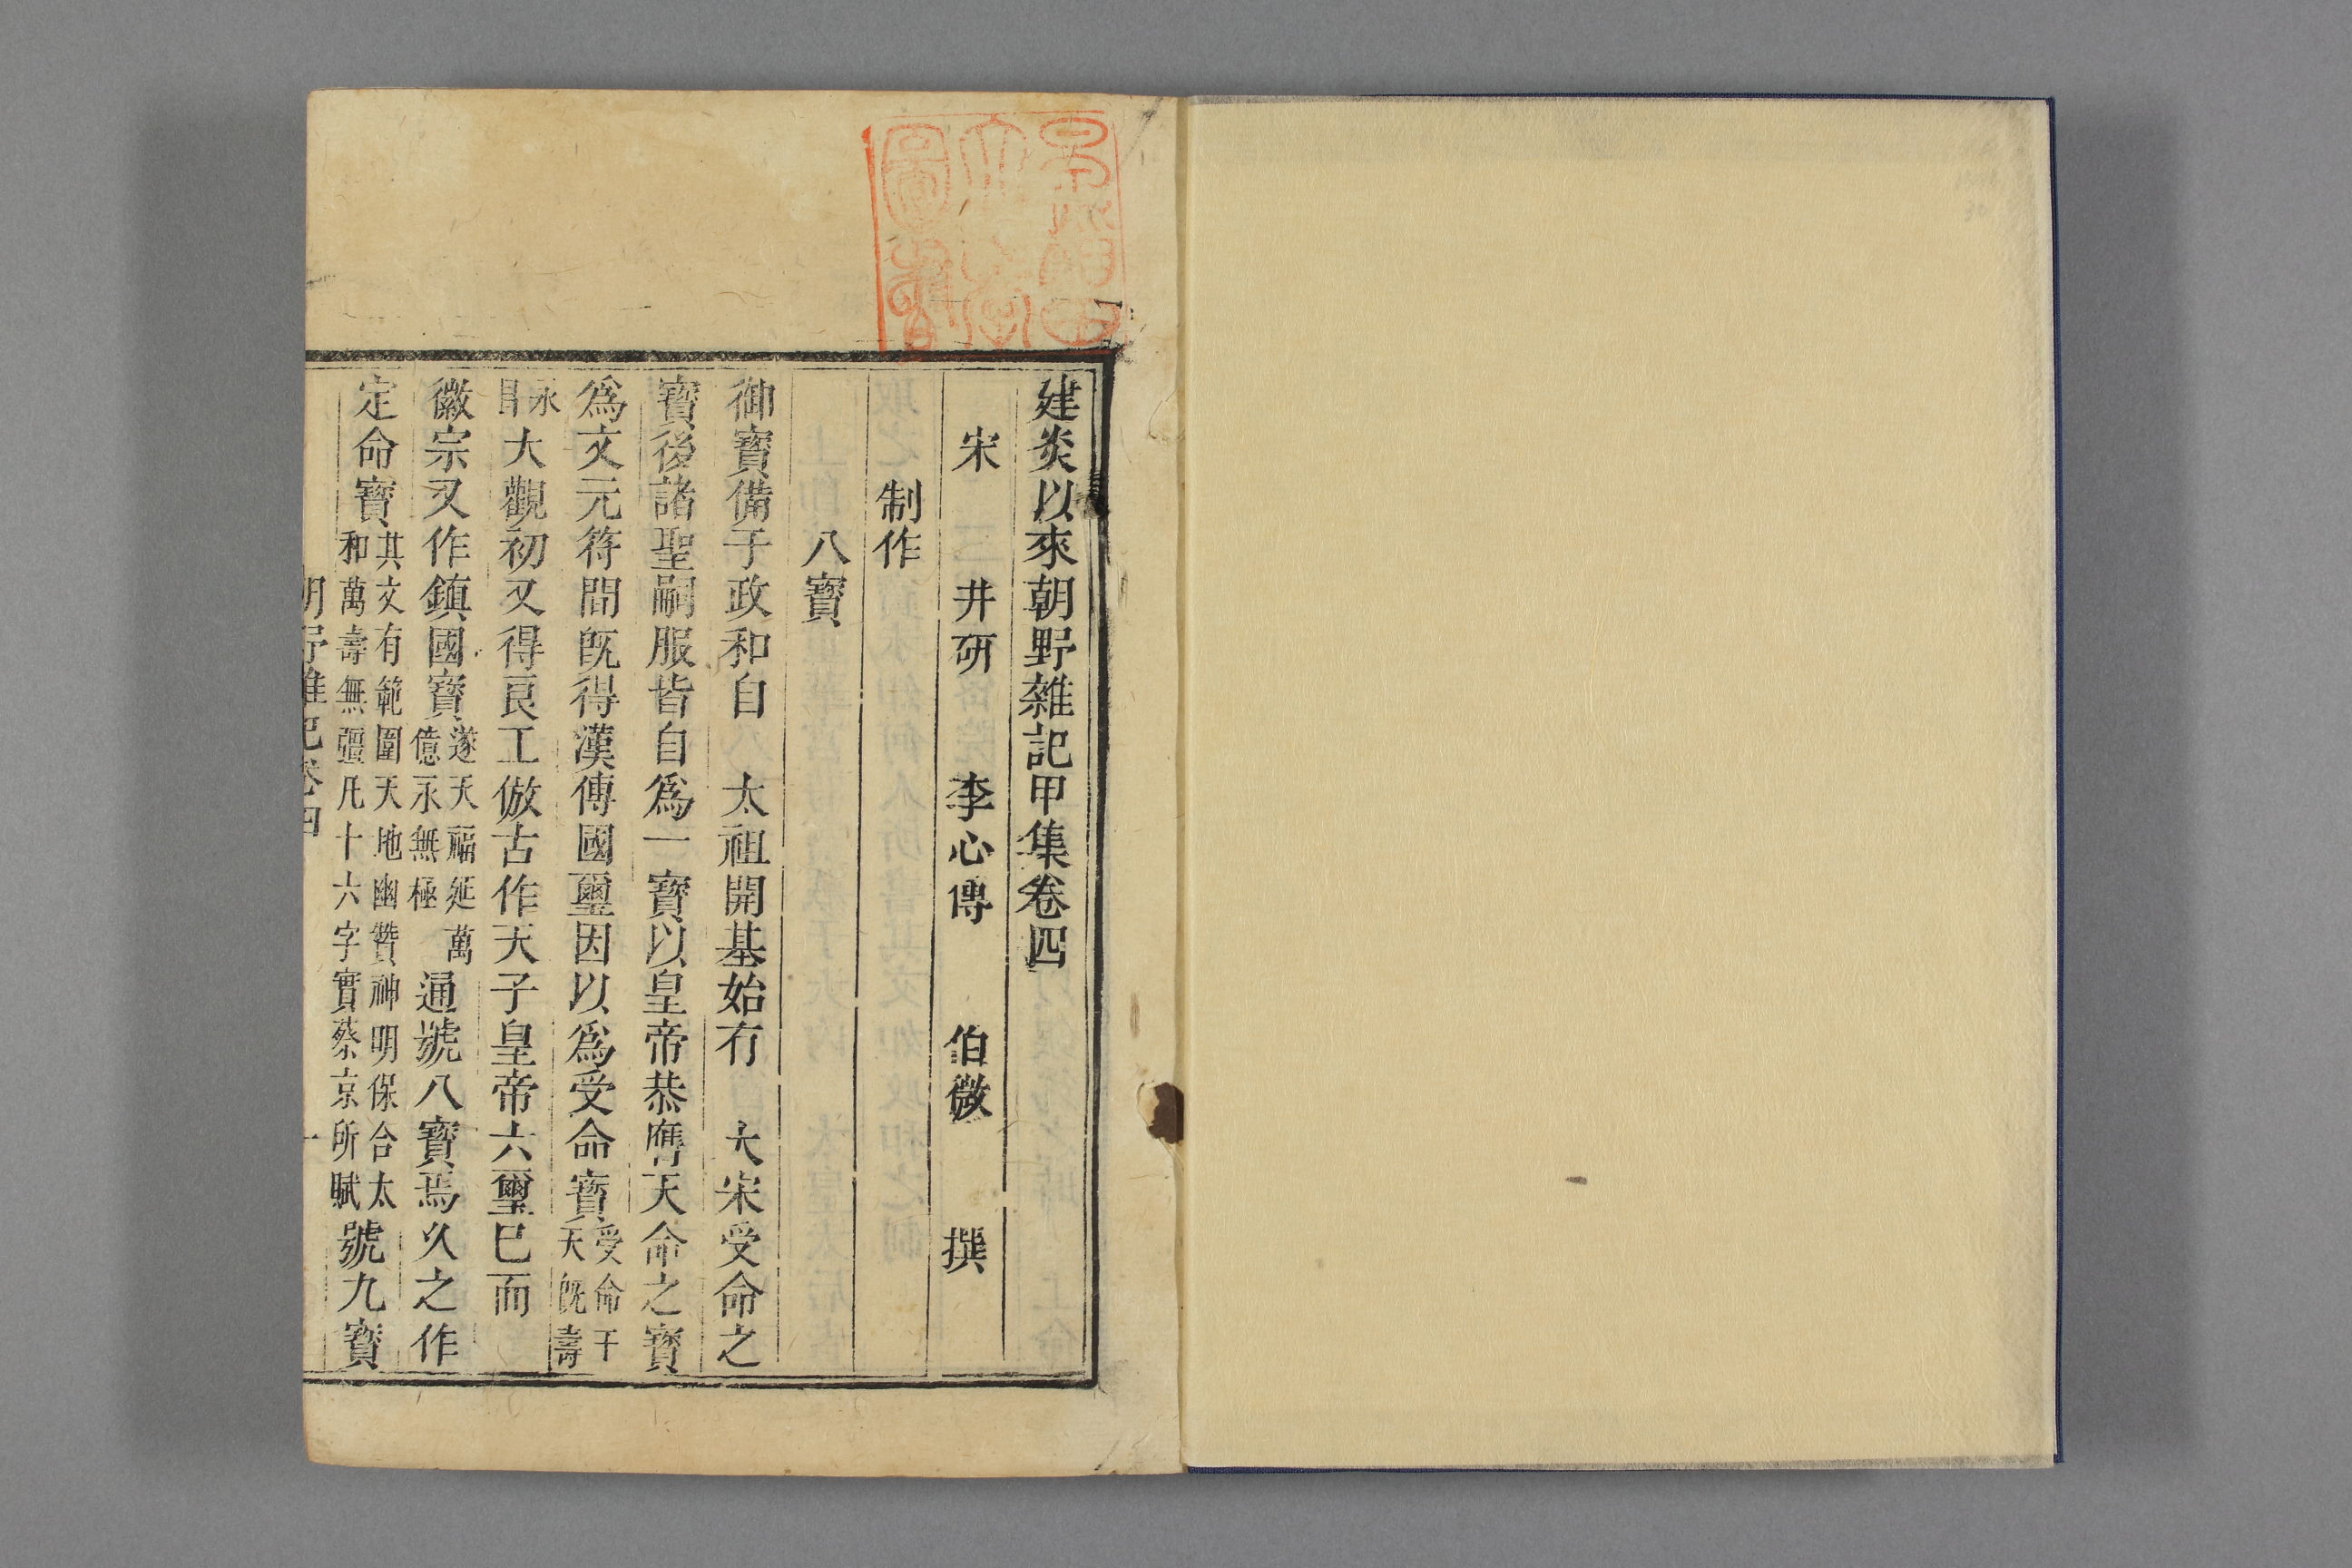 建炎以來朝野雜記甲集卷四
宋 井研 李心傳 伯微 撰
制作
八寶
御寶備于政和自 太祖開基始有 大宋受命之
寶後諸聖嗣服皆自為一寶以皇帝恭膺天命之寶
為文元符間既得漢傳國璽因以為受命寶受命于天既壽
永昌大觀初又得良工倣古作天子皇帝六璽巳而
徽宗又作鎮國寶遂天福延萬億永無極通號八寶焉久之作
定命寶其文有範圍天地幽贊神明保合太和萬壽無疆凡十六字實蔡京所賦號九寶
朝野雜記卷四 一